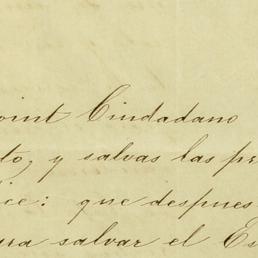 oint Ciudadano
to, y salvas las pr
ice: que despues
ara salvar el Es